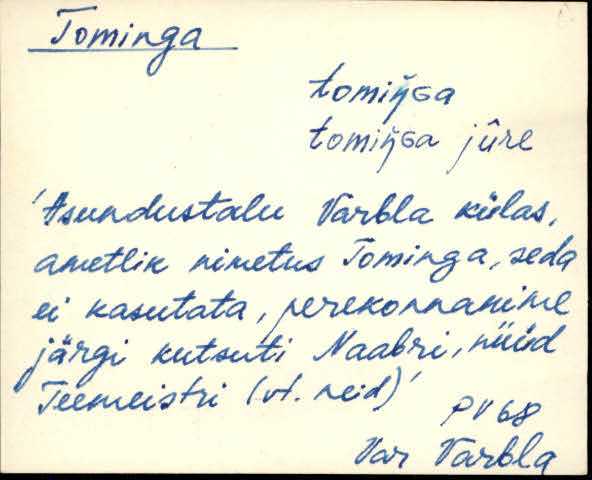 Tominga
tomiŋ̆ɢa
tomiŋ̆ɢa jûre
'Asundustalu Varbla külas,
ametlik nimetus Tominga, seda
ei kasutata, perekonnanime
järgi kutsuti Naabri, nüüd
Teemeistri (vt. neid)'
PV 68
Var Varbla